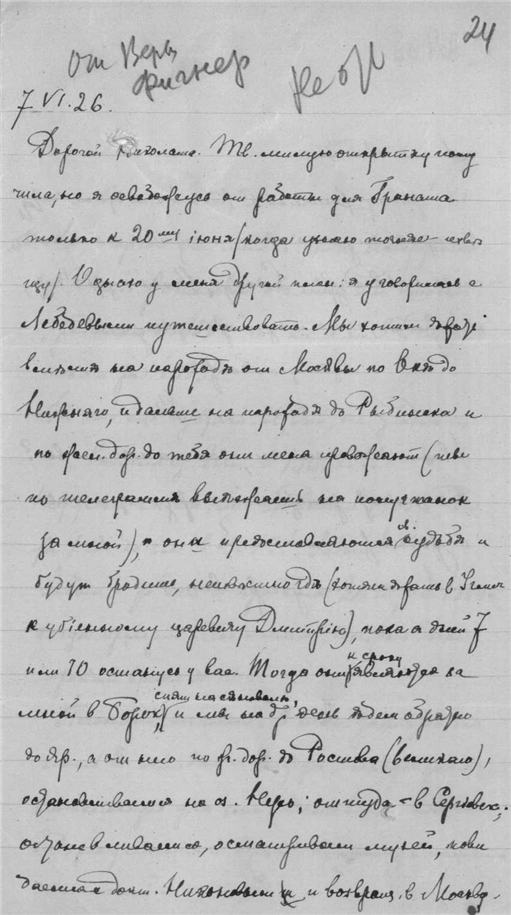 24
от Веры
Фигнер
7 VI. 26.
Дорогой Тв. милую открытку полу
чила, но я освобожусь от работы для Граната
только к 20му июня (когда уезжаю
). Однако у меня другой план: я уговорилась с
Лебедевыми путешествовать. Мы хотим
на пароходѣ от Москвы по Окѣ до
Нижняго, и дальше на пароходѣ до Рыбинска и
по жел. дор. до тебя они меня провожают (ты
по телеграммѣ выѣзжаешь на полустанок
за мной), а они предоставляются судьбѣ и
будут бродить, неизвѣстно гдѣ (хотят ѣхать в Углич
к убіенному царевичу Дмитрію), пока я дней 7
или 10 останусь у вас. Тогда они к сроку являются за
мной в и мы на др. день ѣдем обратно
до Яр., а от него по ж. дор. до Ростова (великаго),
останавливаемся на оз. Неро; оттуда – в Сергіевск.;
останавливаемся, осматриваем музей, пови
даемся с и возвращ. в Москву.